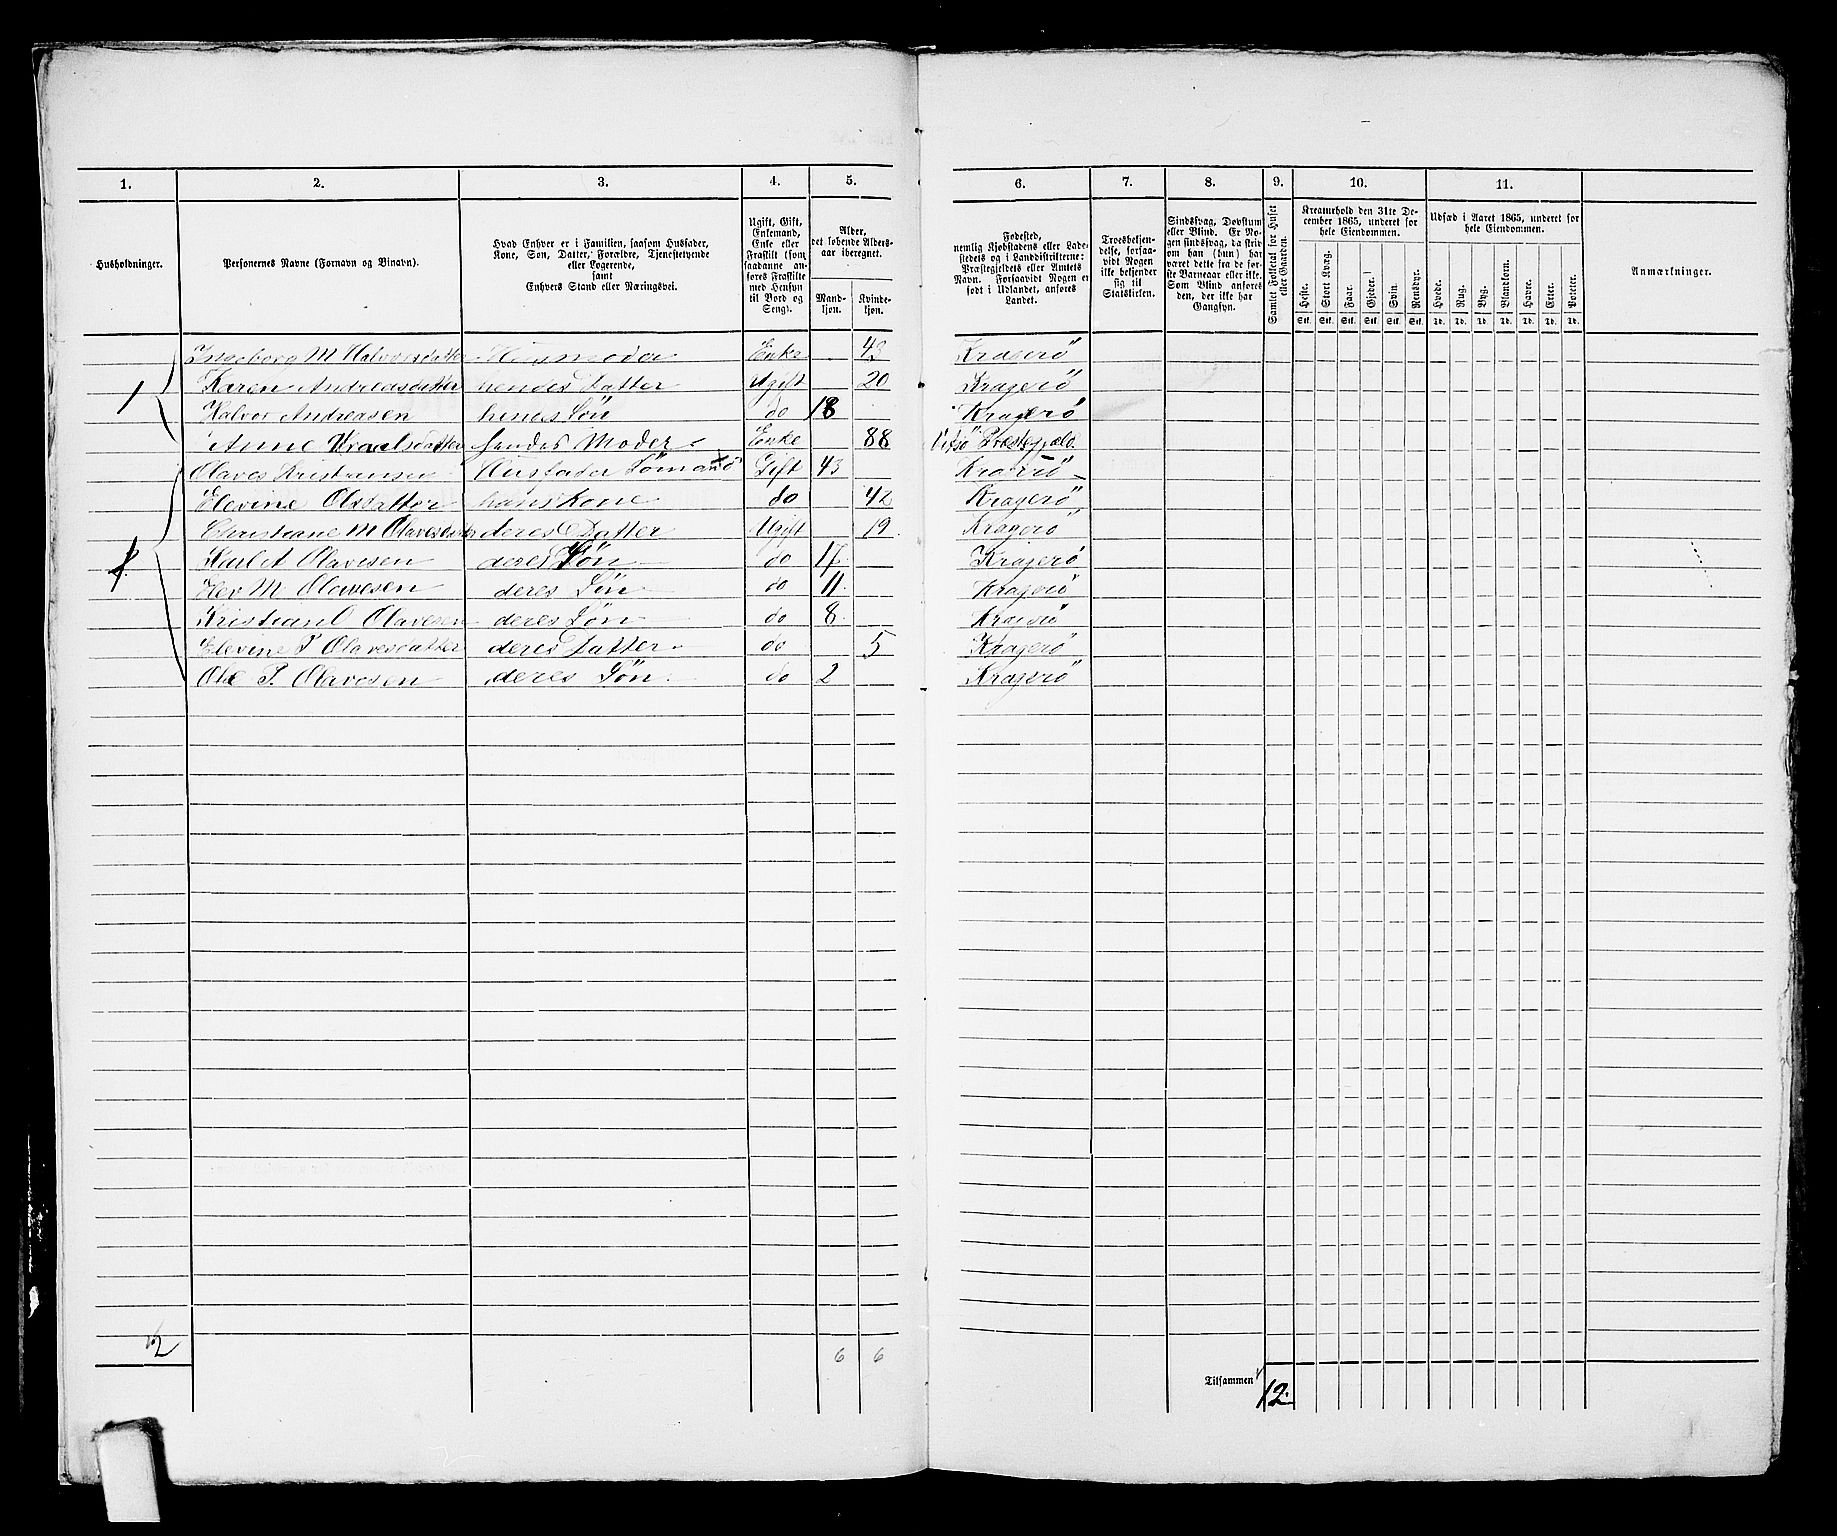 1. 2. 3. 4. 5. 6. 7. 8. 9. 10. 11.
Husholdninger.
Personernes Navne (Fornavn og Binavn).
Hvad Enhver er i Familien, saasom Husfader,
Kone, Søn, Datter, Forældre, Tjenestetyende
eller Logerende,
samt
Enhvers Stand eller Næringsvei.
Ugift, Gift,
Enkemand,
Enke eller
Fraskilt (som
saadanne an-
føres Fraskilte
med Hensyn
til Bord og
Seng).
Alder,
det løbende Alders-
aar iberegnet.
Mand-
kjøn.
Kvinde-
kjøn.
Fødested,
nemlig Kjøbstadens eller Lade-
stedets og i Landdistrikterne:
Præstegjeldets eller Amtets
Navn. Forsaavidt Nogen er
født i Udlandet, anføres
Landet.
Troesbekjen-
delse, forsaa-
vidt Nogen
ikke bekjender
sig til
Statskirken.
Sindssvag, Døvstum
eller Blind. Er No-
gen sindssvag, da skriv
om han (hun) har
været dette fra de før-
ste Barneaar eller ikke.
Som Blind anføres
den, der ikke har
Gangsyn.
Samlet Folketal for Huset
eller Gaarden.
Kreaturhold den 31te De-
cember 1865, underet for
hele Eiendommen.
Heste. Stort Kvæg. Faar. Gjeder. Svin. Rensdyr.
Stk. Stk. Stk. Stk. Stk. Stk.
Udsæd i Aaret 1865, underet for
hele Eiendommen.
Hvede. Rug. Byg. Blandkorn. Havre. Erter. Poteter.
Td. Td. Td. Td. Td. Td. Td.
Anmærkninger.
1 Ingeborg M Halvorsdatter Husmoder Enke Kragerö
Karen Andreasdatter hendes Datter Ugift 20 Kragerö
Halvor Andreasen hines Søn do 18 Kragerö
Anne hendes Moder Enke 88 Præstegjæld
Olaves Kristiansen Husfader Gift 43 Kragerö
2 Elevine Olsdatter hans Kone do 42 Kragerö
Christiane M Olavesdatter deres Datter Ugift 19 Kragerö
Karl A Olavesen deres Søn do 17 Kragerö
M Olavesen deres Søn do 11 Kragerö
Kristian O Olavesen deres Søn do 8 Kragerö
Elevine P Olavesdatter deres Datter do 5 Kragerö
Ole P. Olavesen deres Søn do 2 Kragerö
2 6 6
Tilsammen 12.